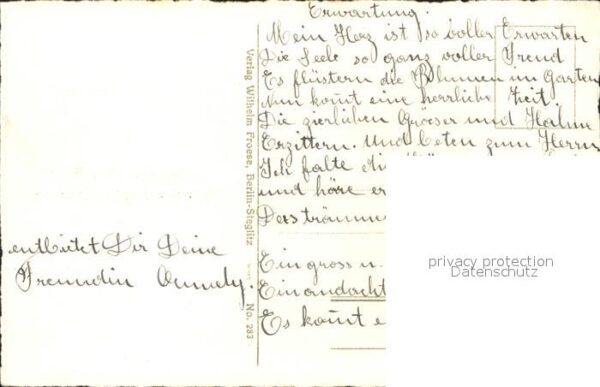 Erwartung.
Mein Herz ist so voller Erwarten
Die Seele so ganz voller Freud
Es flüstern die Blumen im Garten
Nun kom̄t eine herrliche Zeit.
Die zierlichen Gräser und Halme
Erzittern. Und beten zum Herrn
Ich falte die
und höre er
Des träumen
Ein gross u.
Ein andacht
Es kom̄t e
entbietet Dir Deine
Freundin
Verlag Wilhelm Froese, Berlin-Steglitz
No. 283
privacy protection
Datenschutz